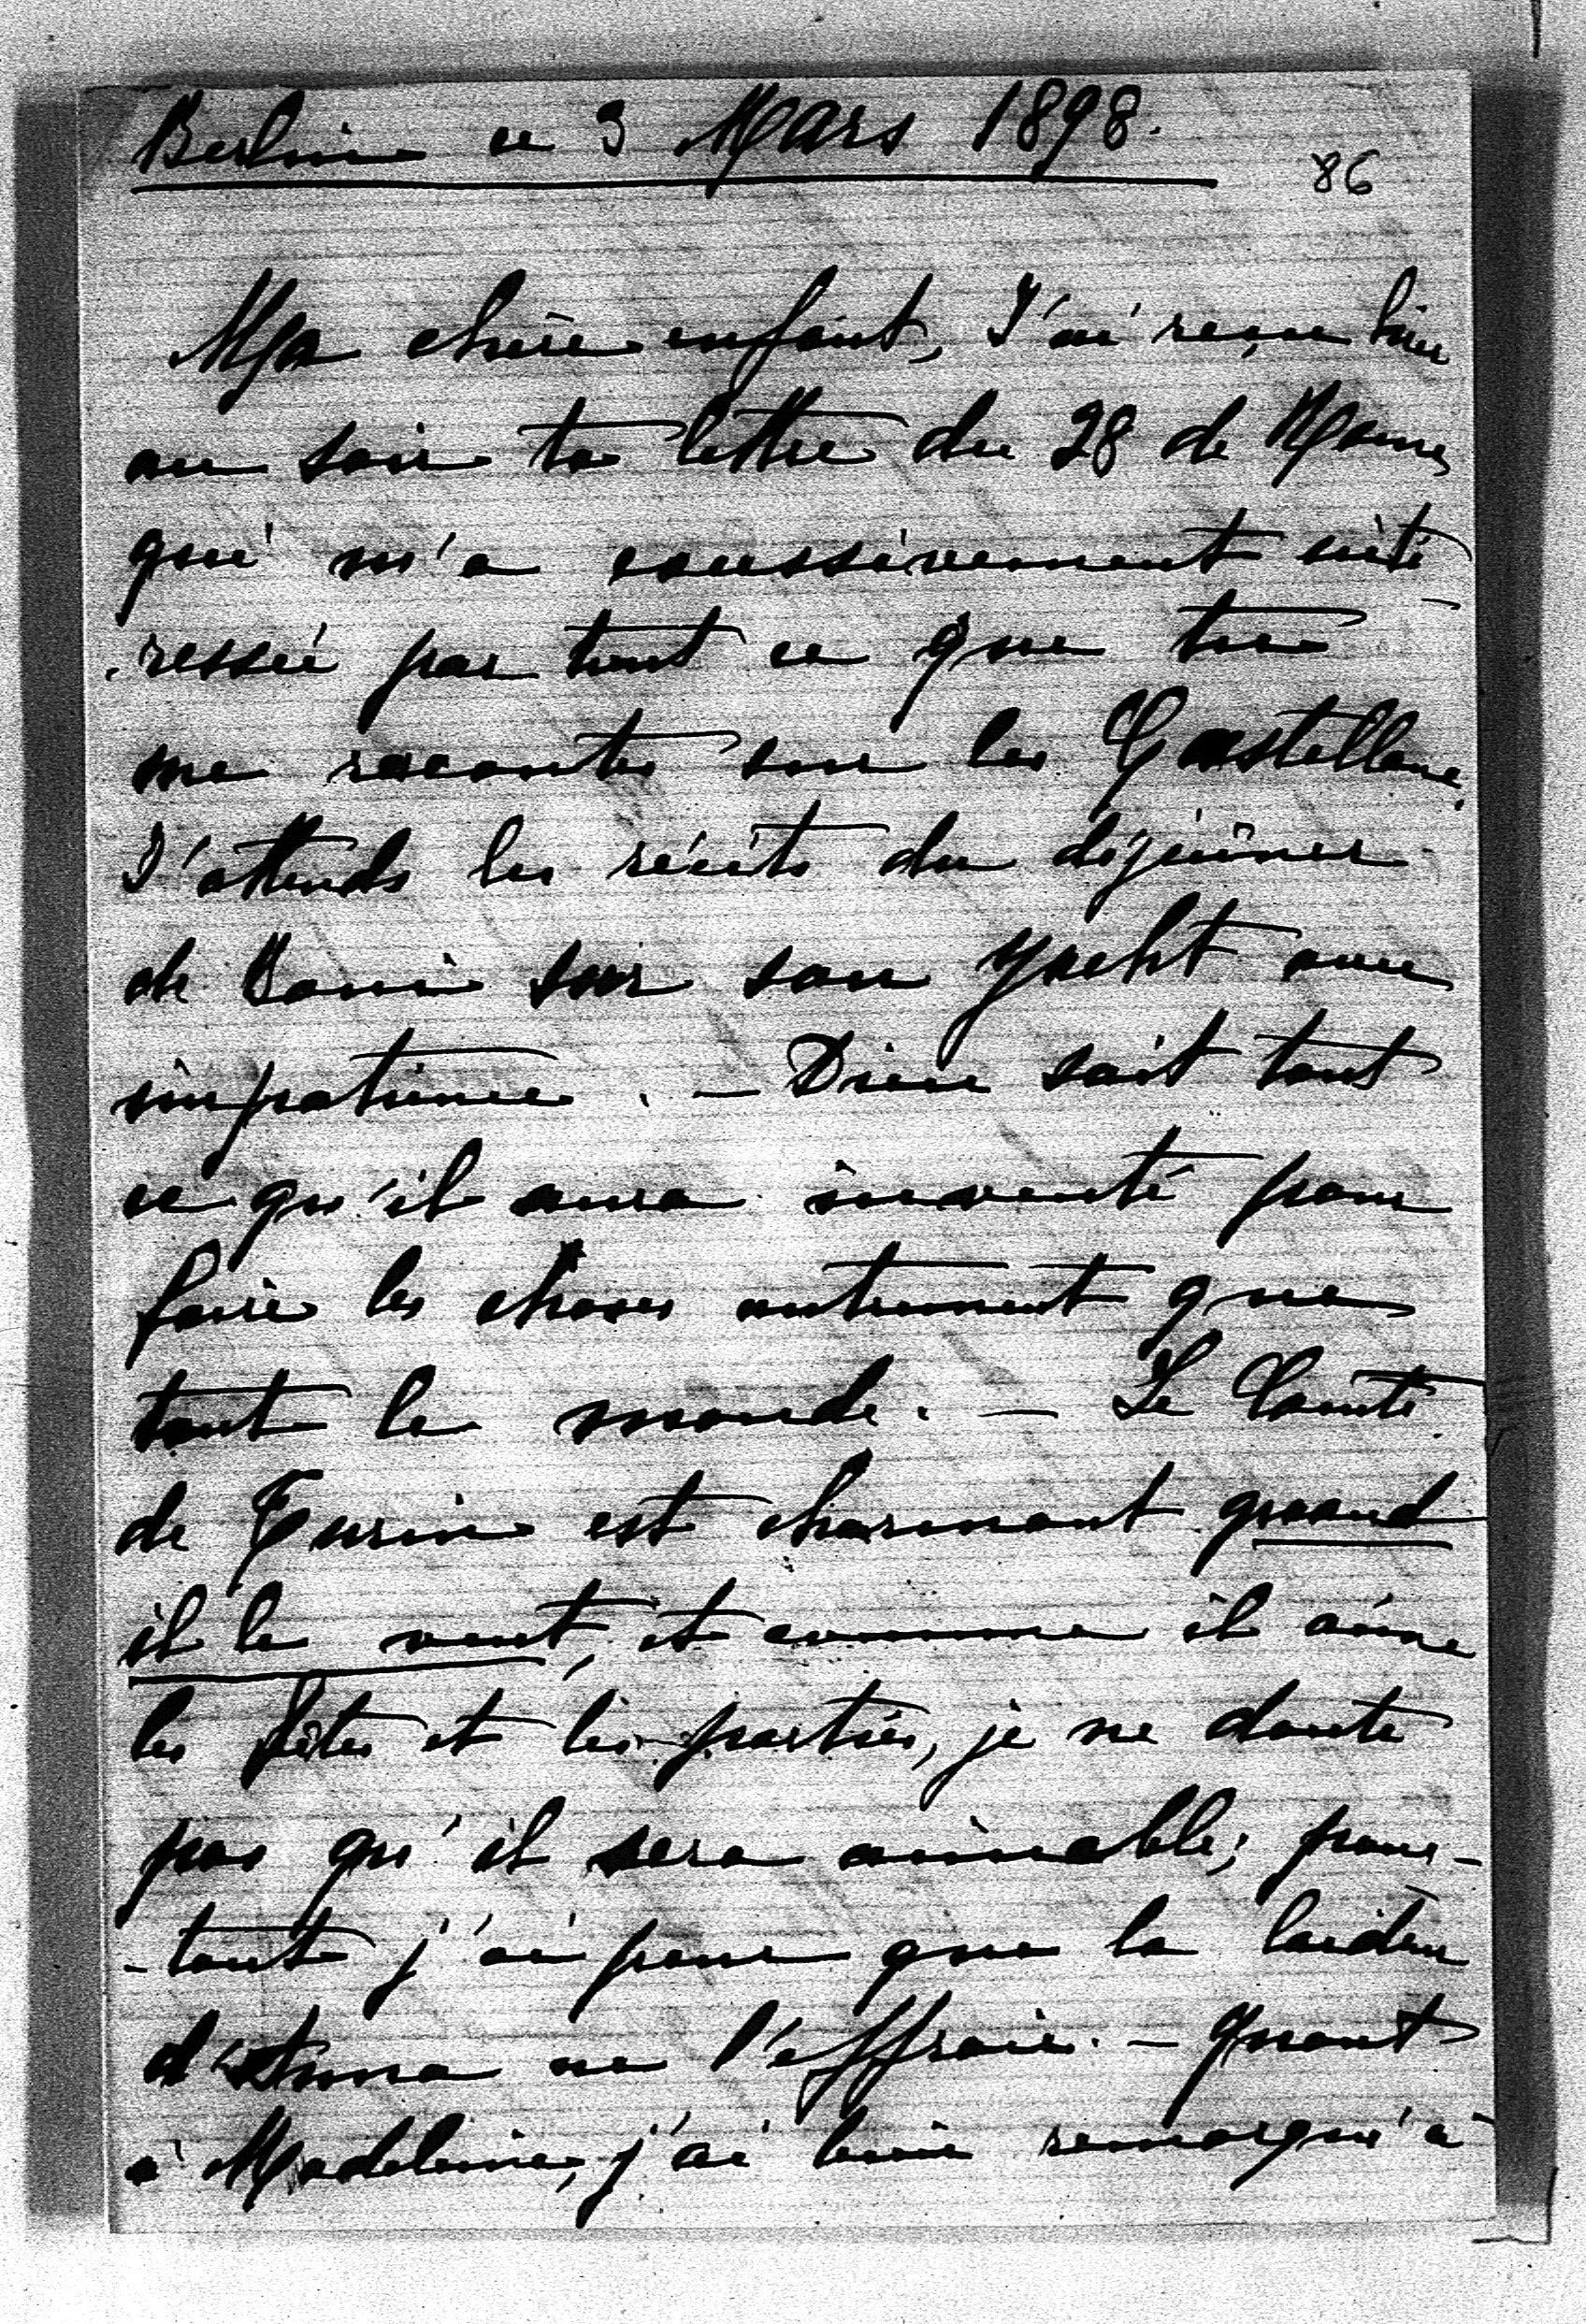 Berlin ce 3 Mars 1898.
86
Ma chère enfant, J'ai reçu hier
au soir ta lettre du 28 de Rome,
qui m'a excessivement inté
-ressée par tout ce que tu
me racontes sur les Castellane.
J'attends les récits du déjeûner
de Boni sur son yacht avec
impatience. — Dieu sait tout
ce qu'il aura inventé pour
faire les choses autrement que
tout le monde. — Le Comte
de Turin est charmant quand
il le veut, et comme il aime
les fêtes et les parties, je ne doute
pas qu'il sera aimable; pour-
-tant j'ai peur que la laideur
d'Anna ne l'effraie. — Quant
à Madeleine, j'ai bien remarqué à